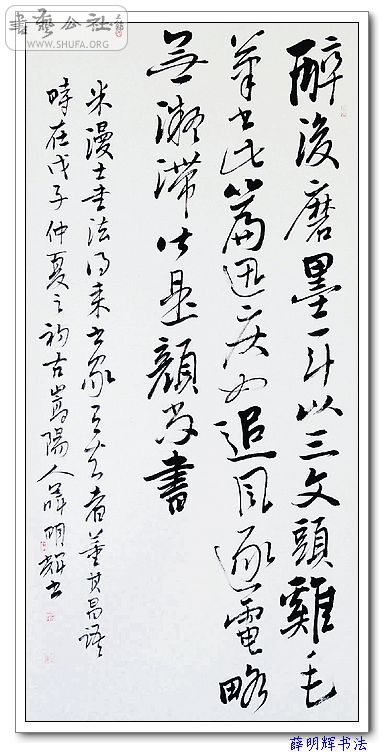 書藝公社
www.SHUFA.ORG
醉後磨墨一斗以三文頭雞毛
筆書此篇迅疾如追風逐電略
無凝滯皆是顏尚書
米漫士書法得來書家者董其昌語
時在戊子仲夏之初古嵩陽人薛明輝書
薛明辉书法